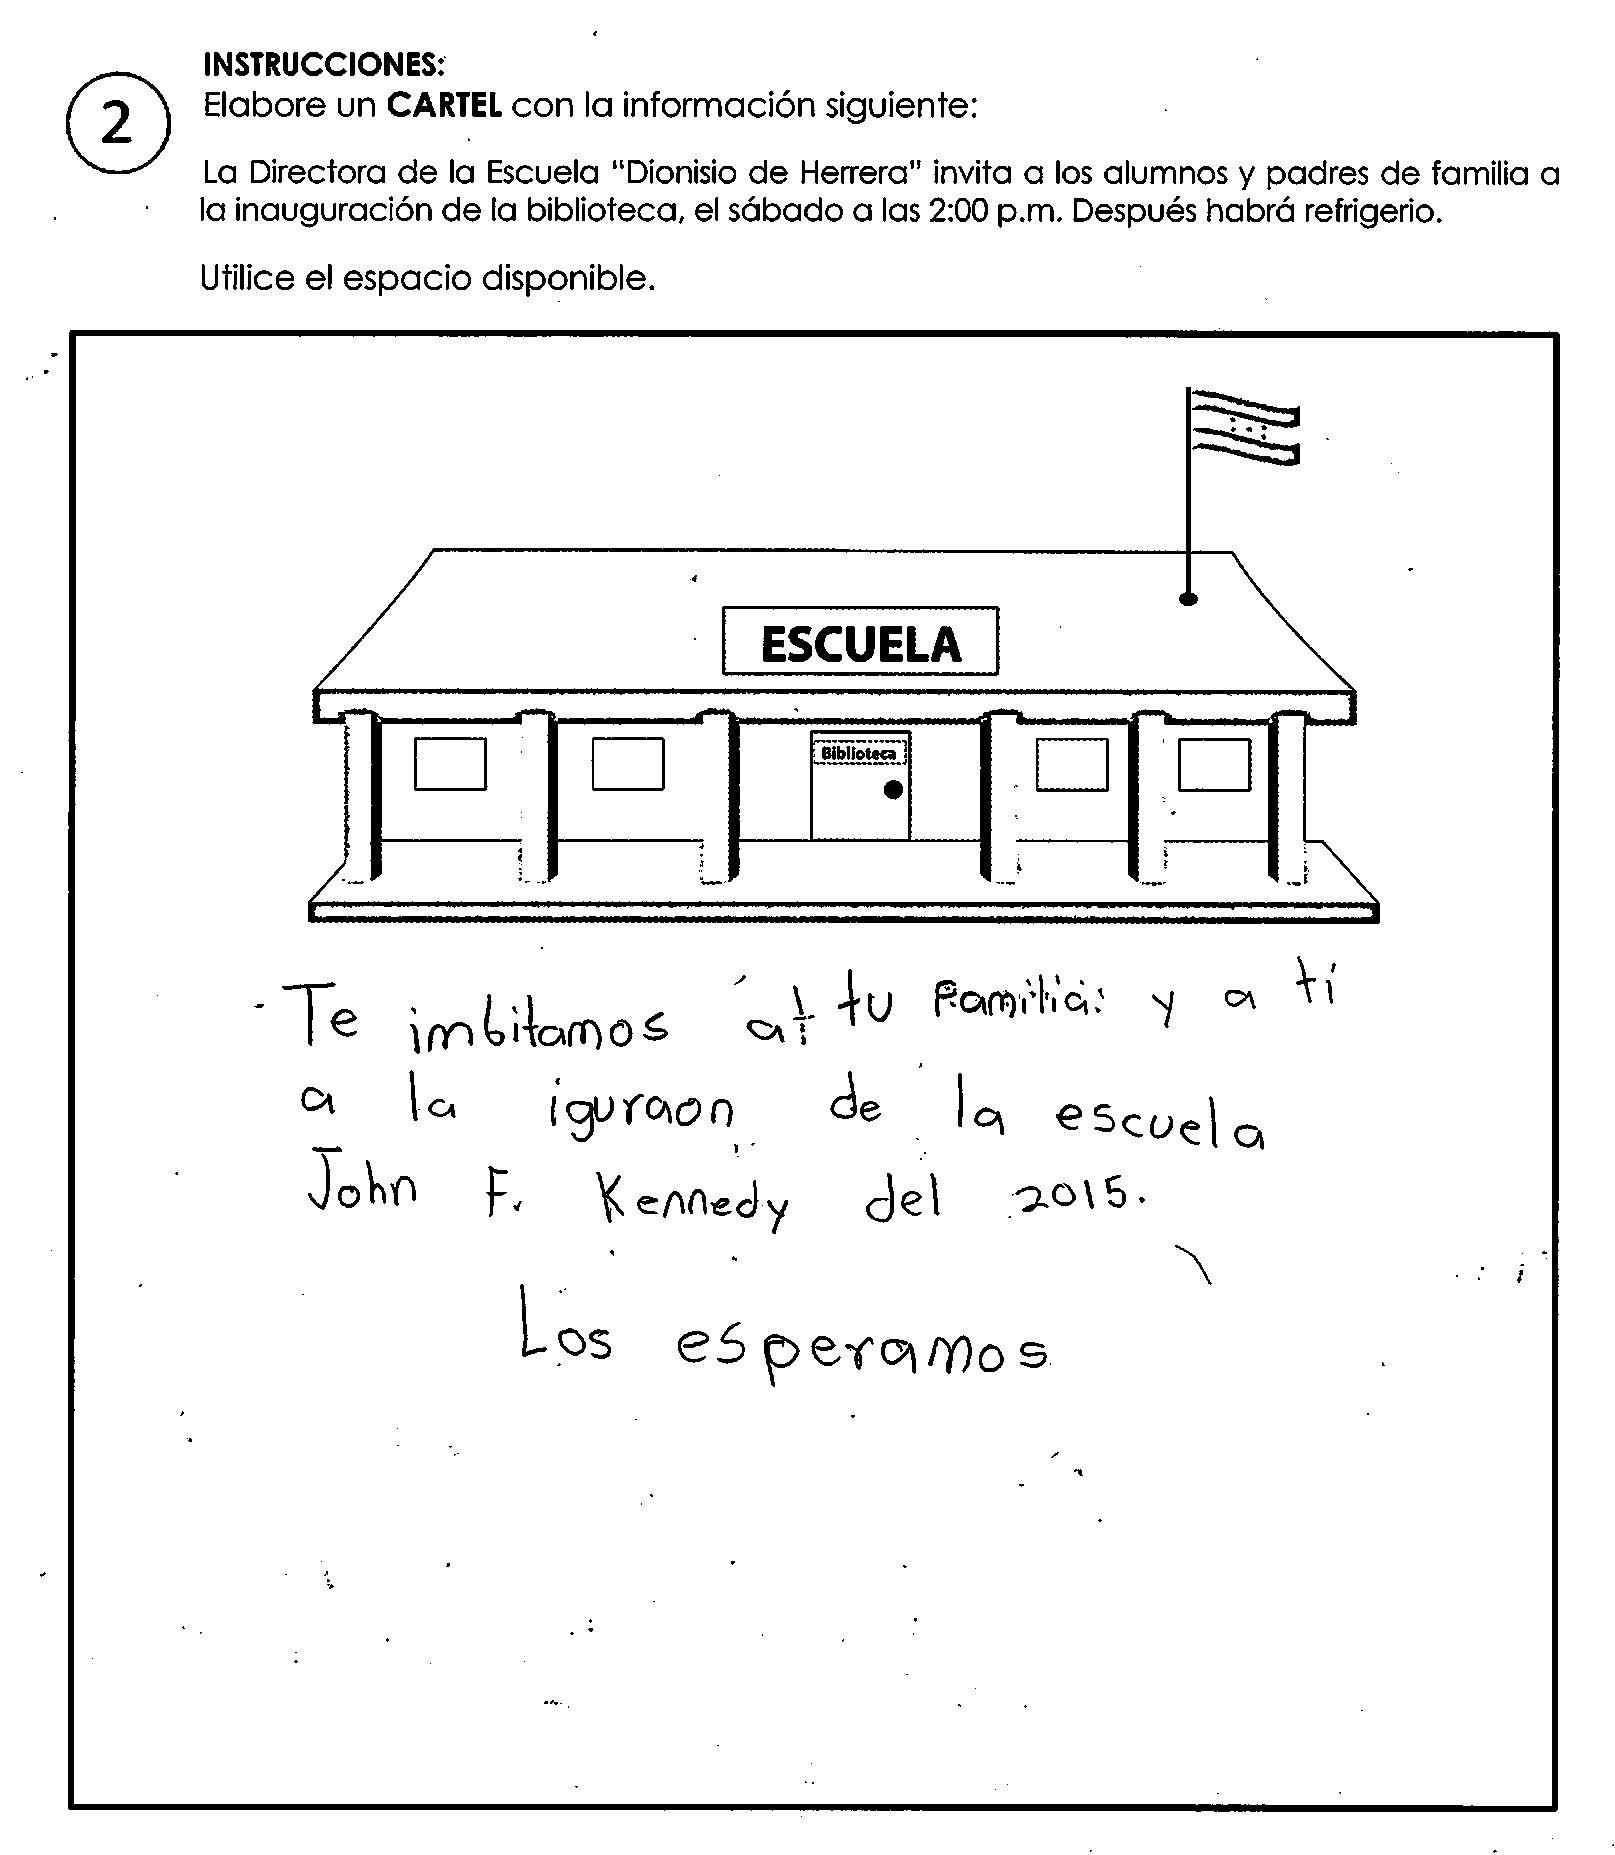 INSTRUCCIONES:
2
Elabore un CARTEL con la información siguiente:
La Directora de la Escuela "Dionisio de Herrera" invita a los alumnos y padres de familia a
la inauguración de la biblioteca, el sábado a las 2:00 p.m. Después habrá refrigerio.
Utilice el espacio disponible.
ESCUELA
Biblioteca
Te imbitamos at tu Familia y a ti
a la iguraon de la escuela
John F. Kennedy del 2015.
Los esperamos